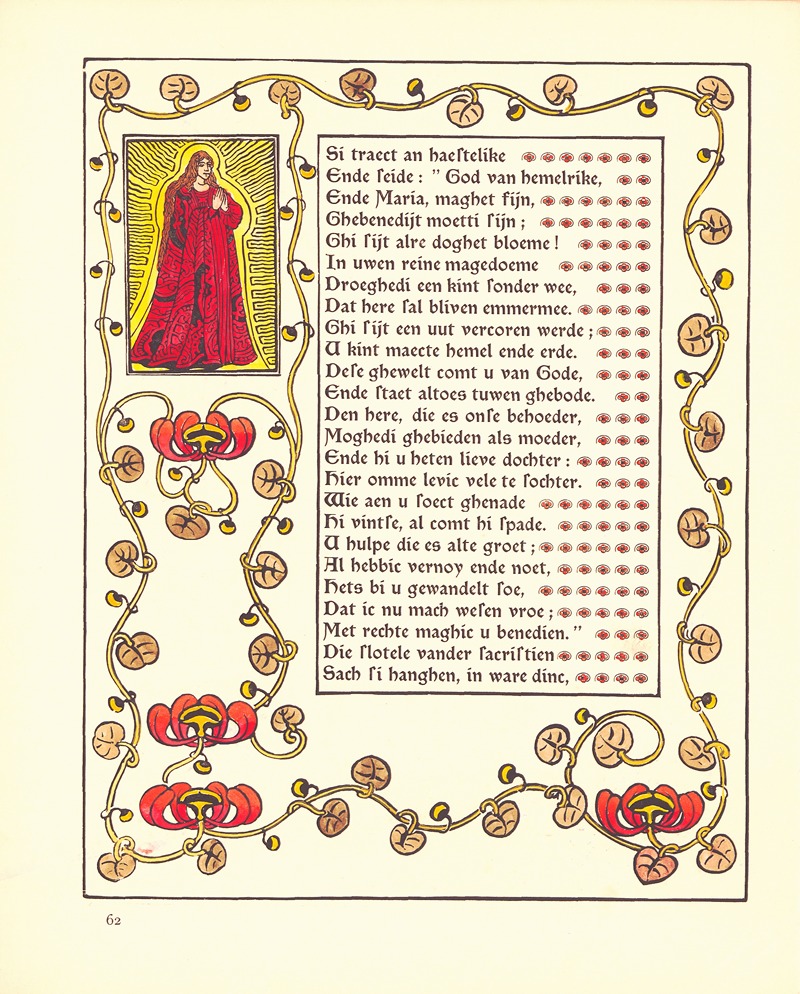 Si traect an haeſtelike
Ende ſeide : ” God van hemelrike,
Ende Maria, maghet ſijn,
Ghebenedijt moetti ſijn ;
Ghi ſijt alre doghet bloeme !
In uwen reine magedoeme
Droeghedi een kint ſonder wee,
Dat here ſal bliven emmermee.
Ghi ſijt een uut vercoren werde ;
U kint maecte hemel ende erde.
Deſe ghewelt comt u van Gode,
Ende ſtaet altoes tuwen ghebode.
Den here, die es onſe behoeder,
Moghedi ghebieden als moeder,
Ende hi u heten lieve dochter :
Hier omme levic vele te ſochter.
Wie aen u ſoect ghenade
Hi vintſe, al comt hi ſpade.
U hulpe die es alte groet ;
Al hebbic vernoy ende noet,
Hets bi u gewandelt ſoe,
Dat ic nu mach weſen vroe ;
Met rechte maghic u benedien. ”
Die ſlotele vander ſacriſtien
Sach ſi hanghen, in ware dinc,
62